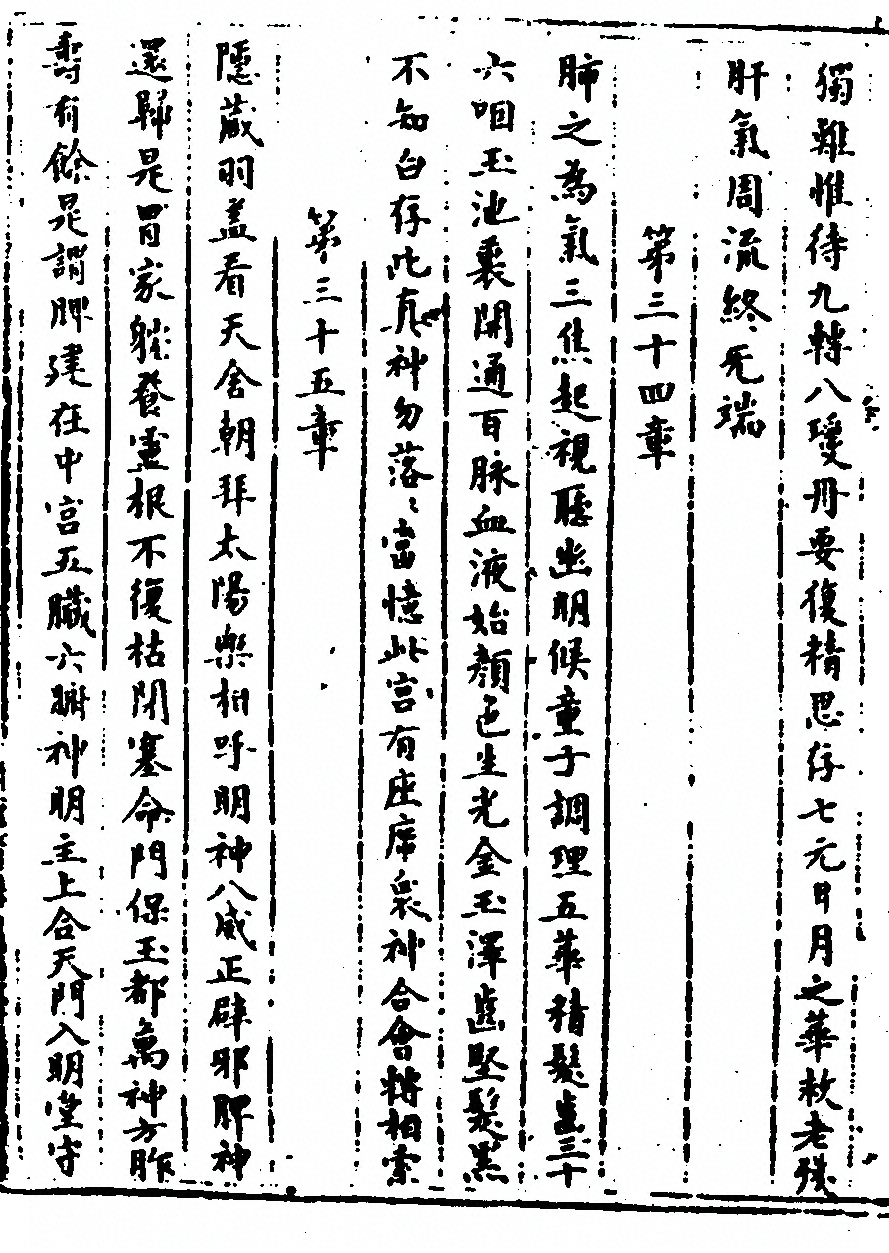 獨難惟待九轉八瓊丹要復精思存七元日月之華救老殘
肝氣周流終无端
第三十四章
肺之為氣三焦起視聽幽明候童子調理五華精髮齒三十
六咽玉池裏開通百脉血液始顏色生光金玉澤齒堅髮黑
不知白存此真神勿落〻當憶此宮有座席衆神合會轉相索
第三十五章
隱藏羽盖看天舍朝拜太陽樂相呼明神八威正辟邪脾神
還歸是胃家躭養靈根不復枯閉塞命門保玉都萬神方胙
壽有餘是謂脾建在中宮五臟六腑神明主上合天門入明堂守